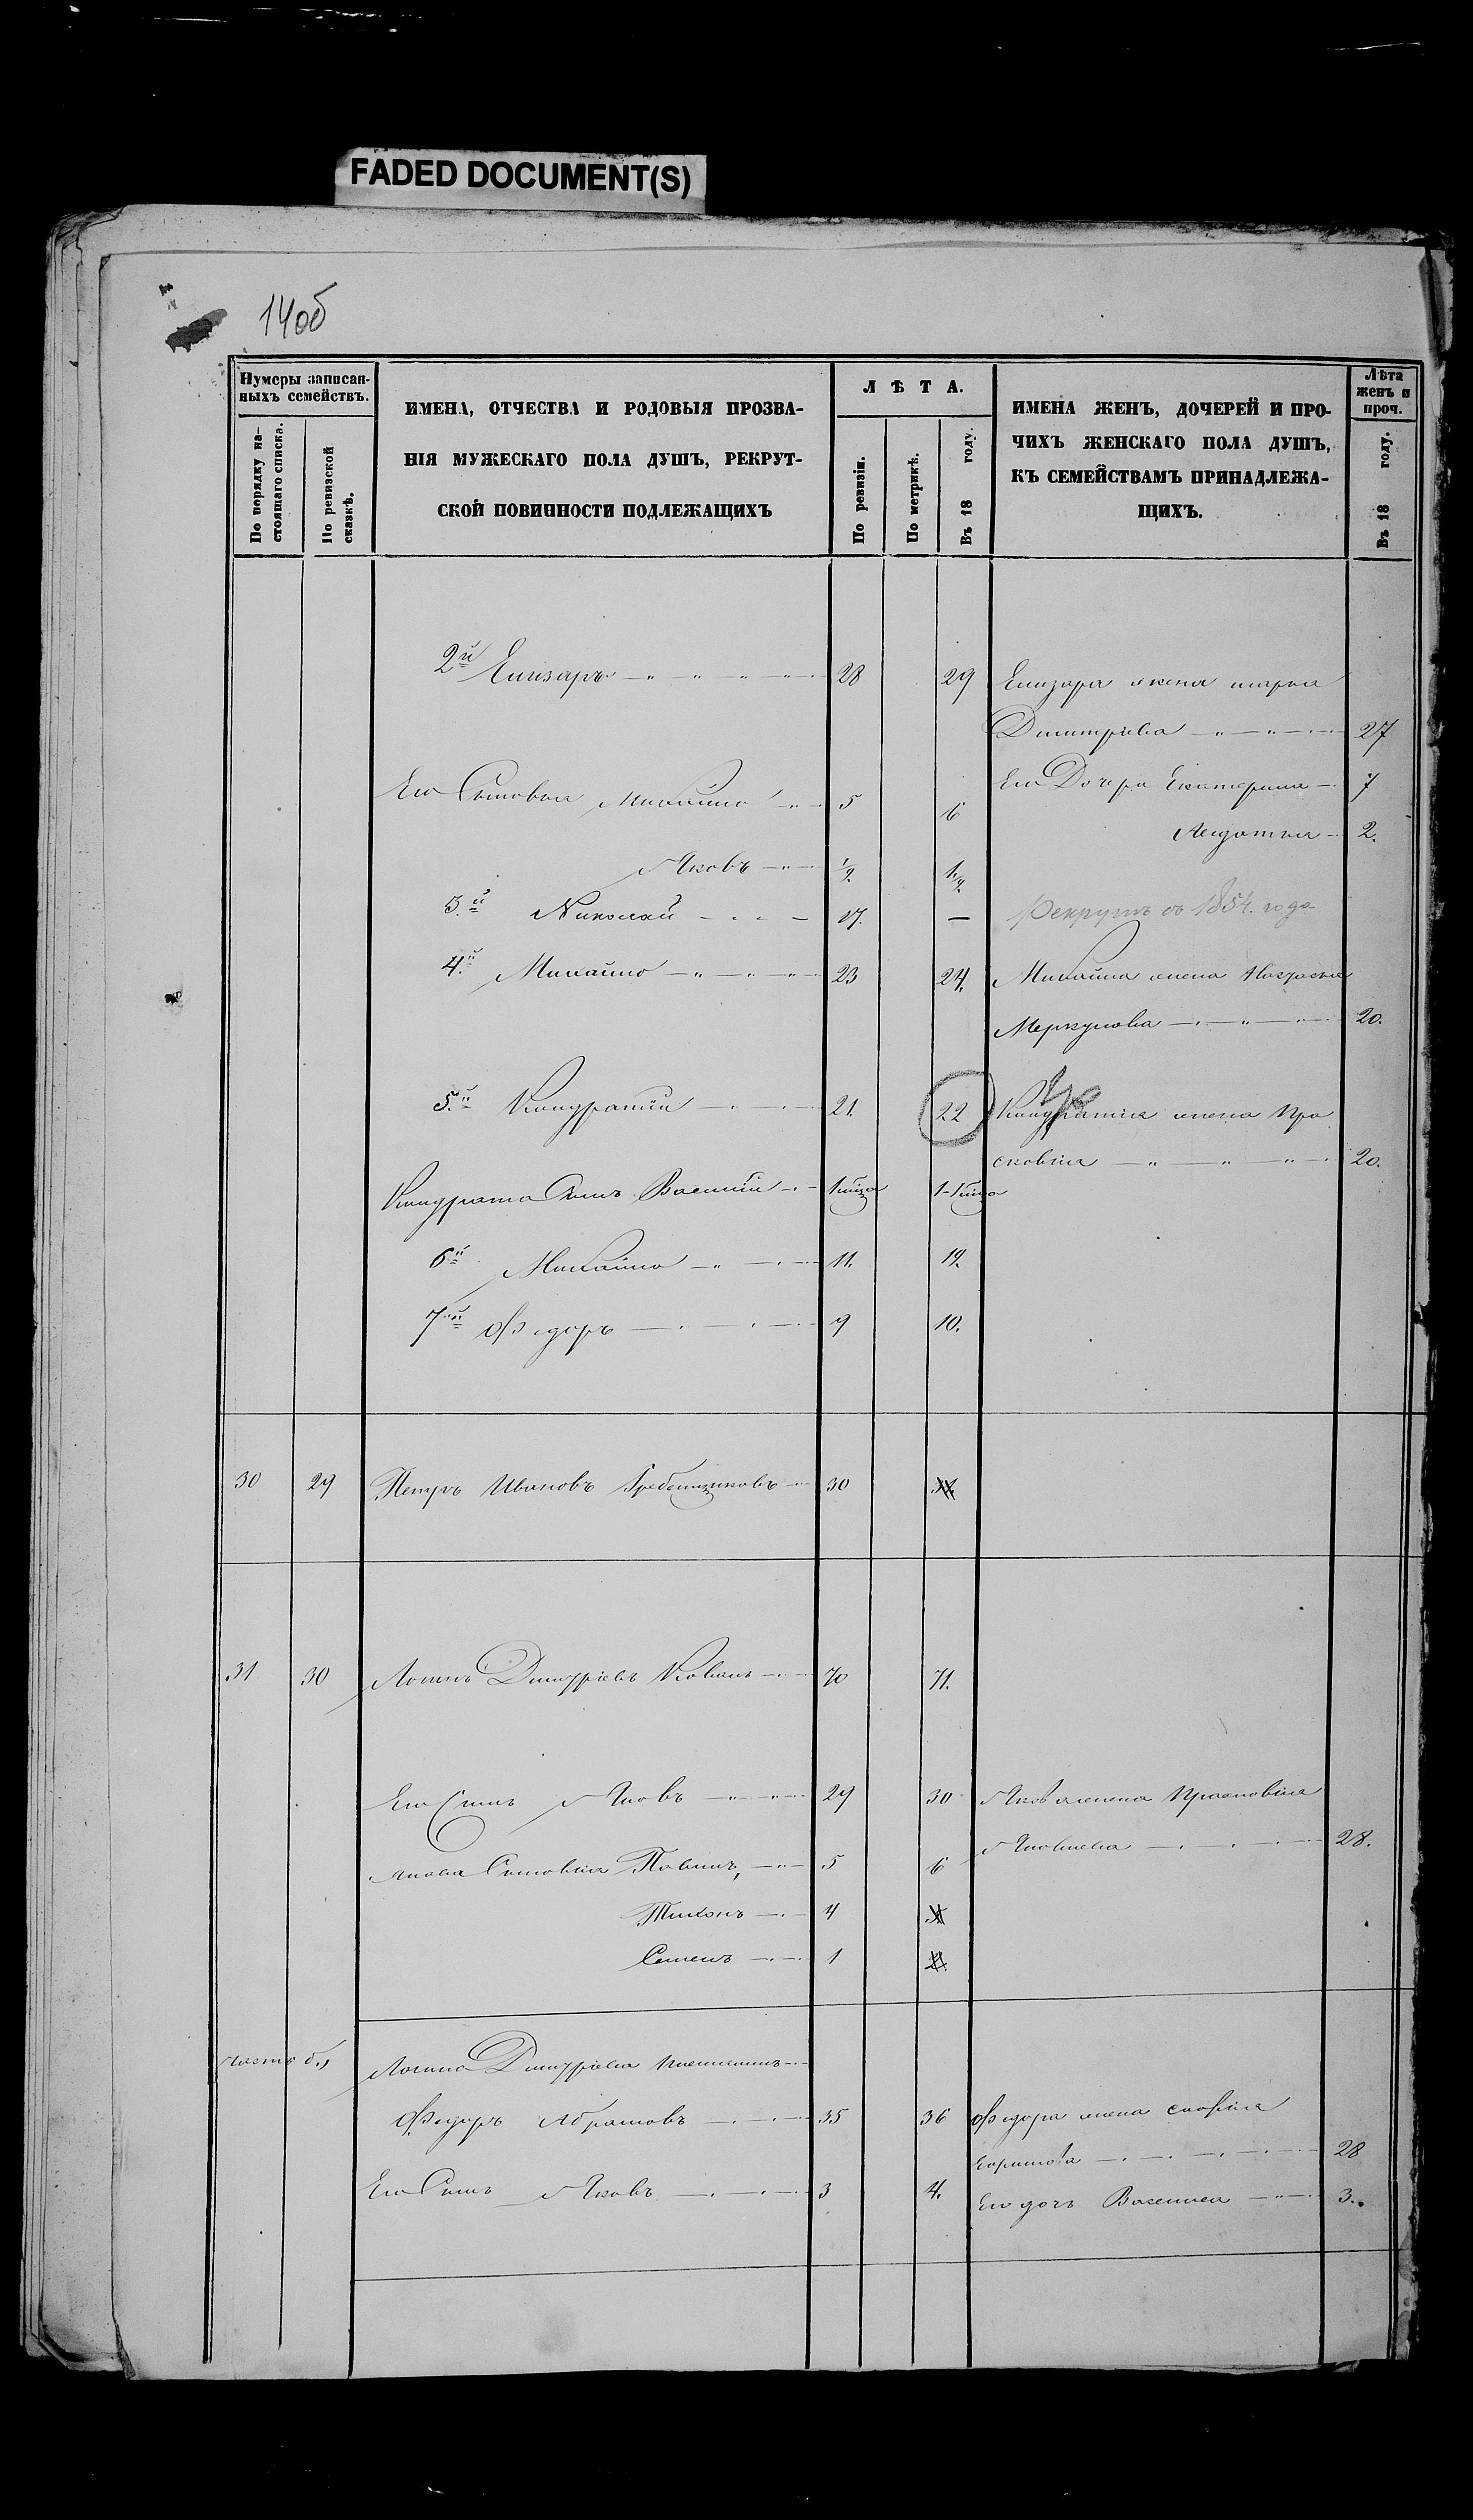 FADED DOCUMENT(S)
14об
Нумеры записан-
ныхъ семействъ.
По порядку на-
стоящаго списка.
По ревизской
сказкѣ.
ИМЕНА, ОТЧЕСТВА И РОДОВЫЯ ПРОЗВА-
НІЯ МУЖЕСКАГО ПОЛА ДУШЪ, РЕКРУТ-
СКОЙ ПОВИННОСТИ ПОДЛЕЖАЩИХЪ
ЛѢТА.
По ревизіи.
По метрикѣ.
Въ 18 году.
ИМЕНА ЖЕНЪ, ДОЧЕРЕЙ И ПРО-
ЧИХЪ ЖЕНСКАГО ПОЛА ДУШЪ,
КЪ СЕМЕЙСТВАМЪ ПРИНАДЛЕЖА-
ЩИХЪ.
Лѣта
женъ и
проч.
Въ 18 году.
2й Елизаръ 28 29 Елизара жена марья
Дмитріева 27
Его Сыновья Михайло 5 6 Его Дочери Екатерина 7
2.
Яковъ 1/2
Николай 17. — Рекрутъ съ 1854. года
4.й Михайло 23 24. Михайла жена Настасья
Меркулова 20.
5.й Кондратій 21. 22 Кондратія жена Пра
сковья 20.
Кондрата Сынъ Василій
6й Михайло 11. 12.
7й Федоръ 9 10.
30 29 Петръ Ивановъ Гребенщиковъ 30
31 30 Логинъ Дмитріевъ 70 71.
Его Сынъ Яковъ 29 30 Якова жена Прасковья
Яковлева 28.
Якова Сыновья Павелъ, 5 6
Тихонъ 4
Семенъ 1
Часть б.,
Логина Дмитріева племянникъ
Федоръ Абрамовъ 35 36 Федора жена
28
Его Сынъ Яковъ 3 4. Его дочь Василиса 3.